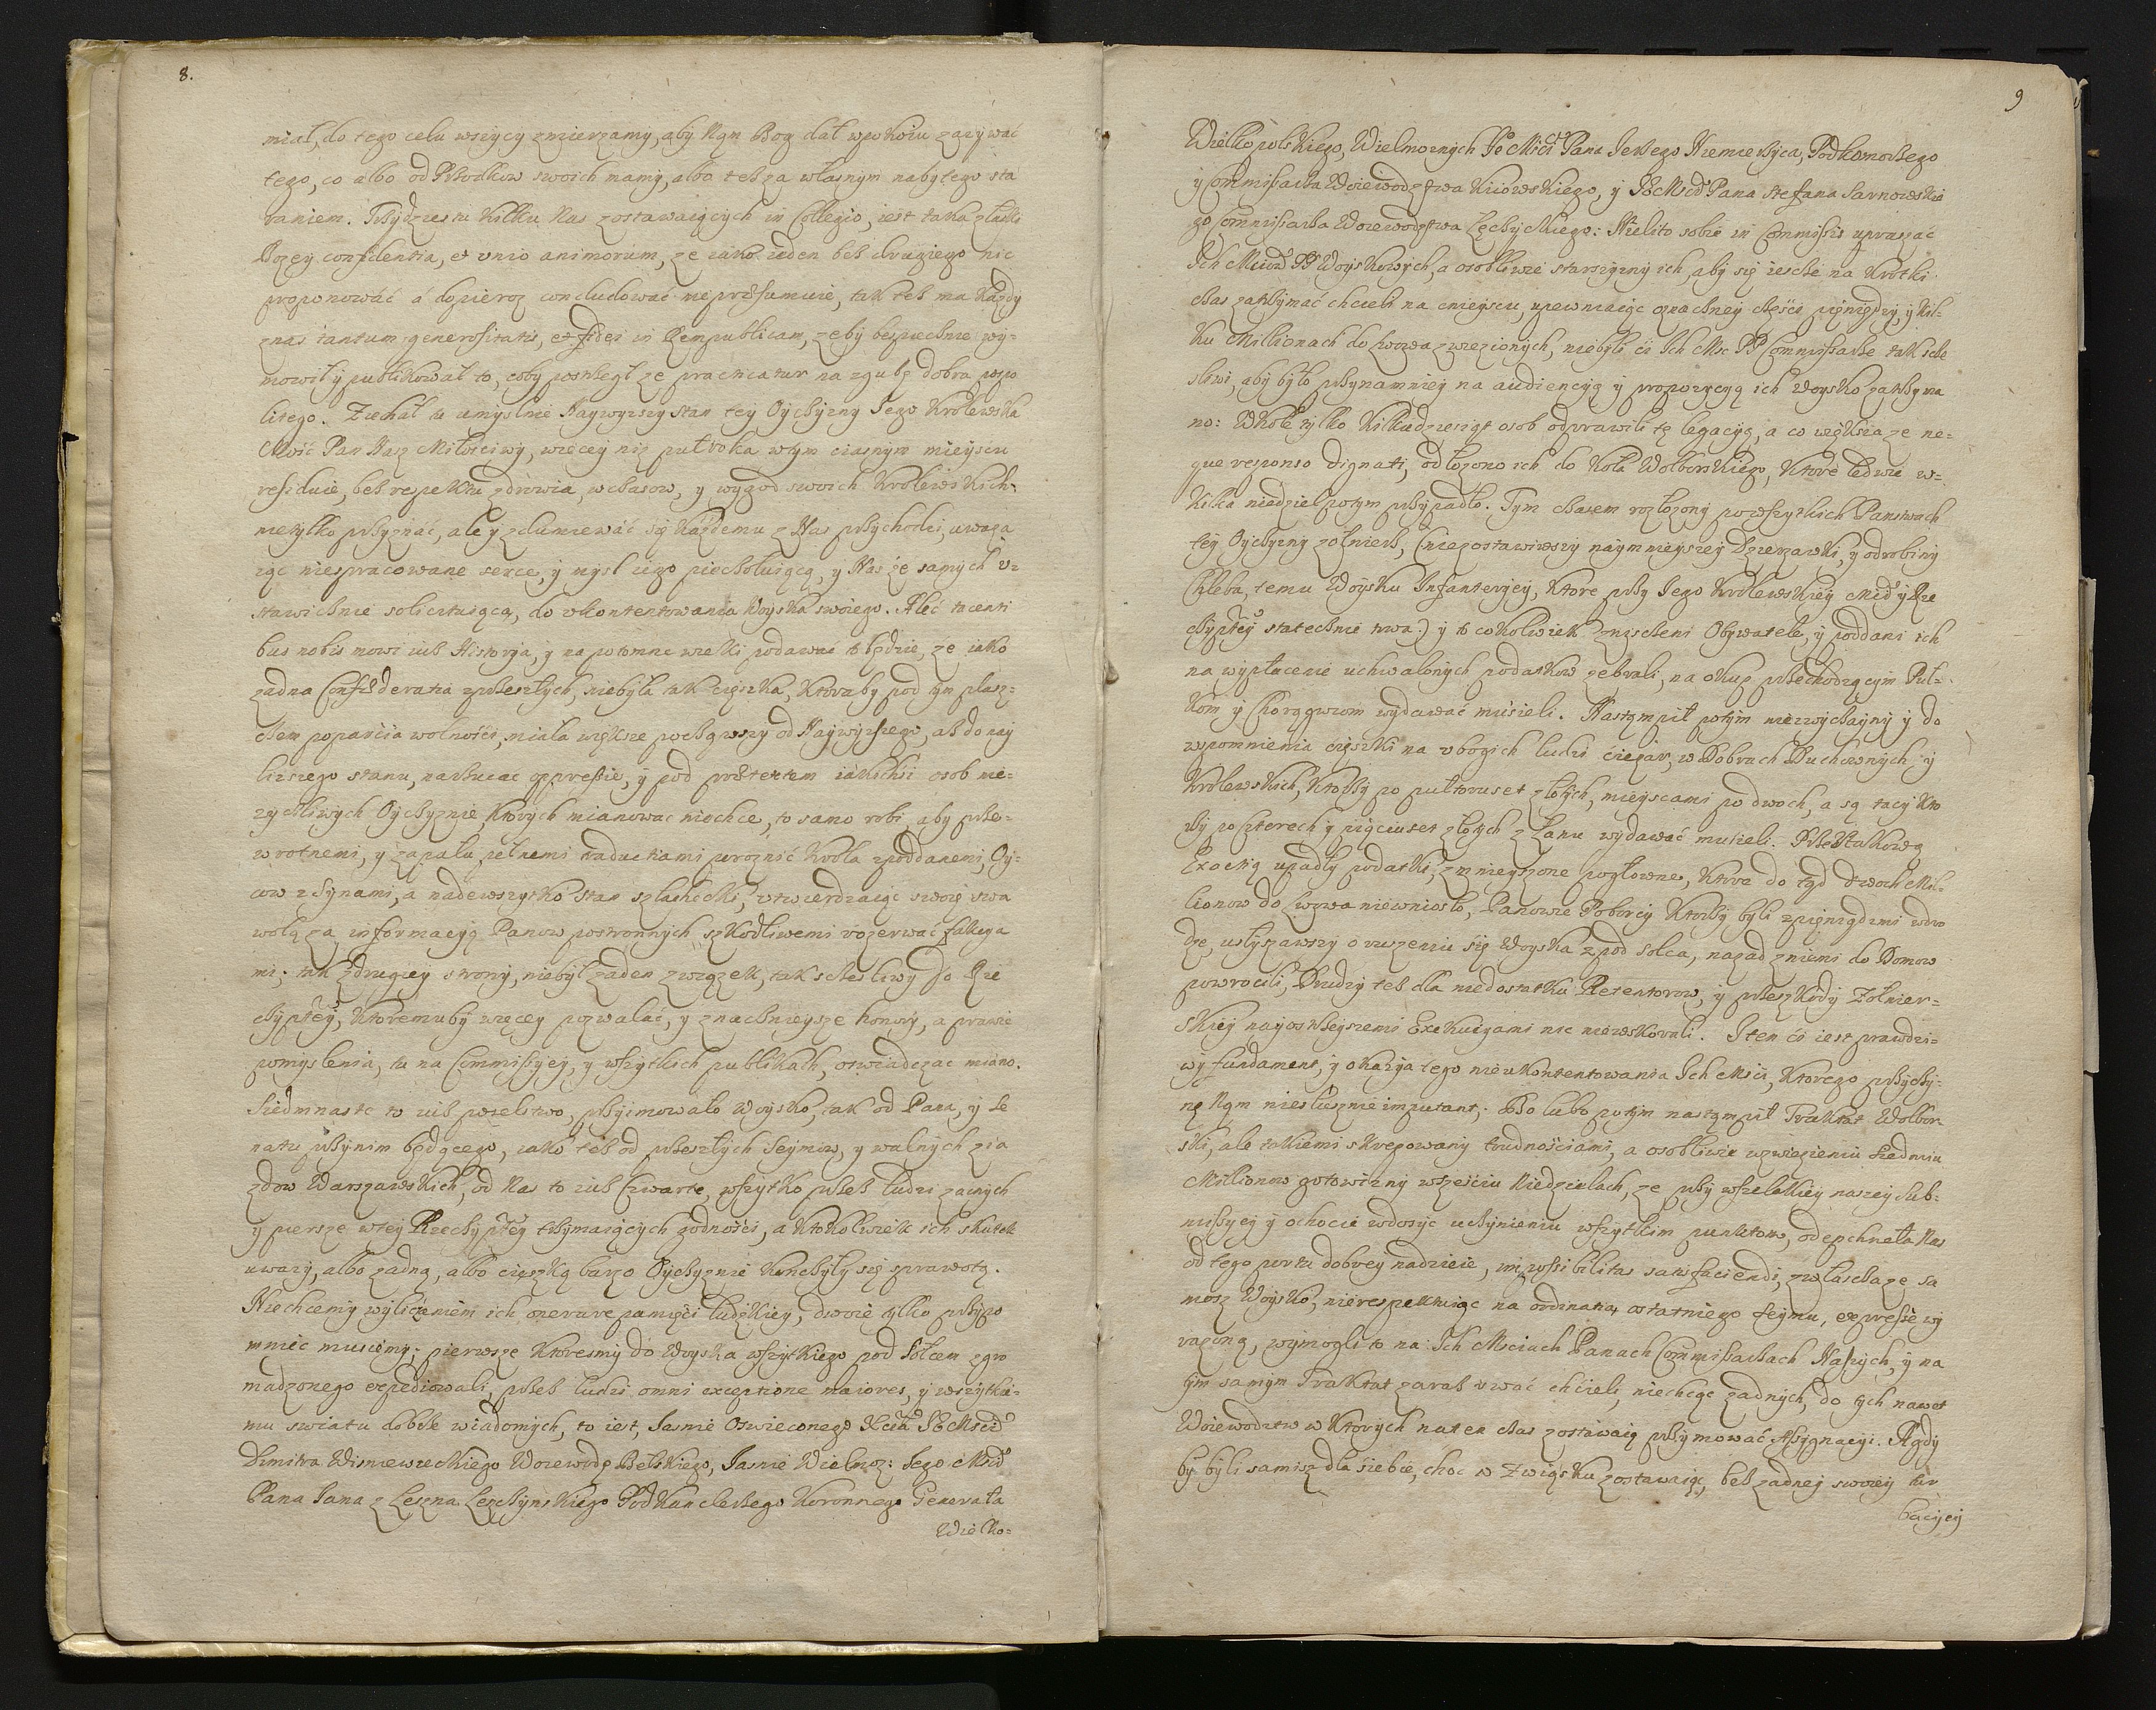 8.
miał, do tego celu wszycy zmierzamy, aby Nam Bog dał w pokoiu zazywać
tego, co albo od Przodkow swoich mamy, albo tesz za własnym nabytego sta
raniem. Trzydziestu kilku Nas zostawaiących in Collegio, iest taka z łaski
Bozey confidentia, et unio animorum, ze iako ieden bez drugiego nic
proponować á dopieroz concludować nie præsumuie, tak tesz ma kazdy
z nas tantum generositatis, et fidei in Rempublicam, zeby bespiecznie wy=
mowił y publikował to, coby postrzegł ze practicatur na zgubę dobra pospo
litego. Ziechał tu umyslnie Naywyzszy stan tey Oyczyzny Jego Krolewska
Mość Pan Nasz Miłościwy, więcey niz pułroka w tym ciasnym mieyscu
residuie, bez respektu zdrowia, wczasow, y wygod swoich Krolewskich,
nietylko przyznać, ale y zdumiewać się kazdemu z Nas przychodzi, uwaza
iąc niespracowane serce, y mysl iego pieczołuiącą, y Nas ze samych u=
stawicznie solicituiącą, do ukontentowania Woyska swoiego. Aleć tacenti
bus nobis mowi iusz Historya, y na potomne wieki podawać to będzie, ze iako
zadna Confœderatia z przeszłych, niebyła tak cięszka, ktoraby pod tym płasz=
czem poparcia wolności, miała większe począwszy od Naywyzszego, az do nay
lizszego stanu, narzucac oppressie, y pod prætextem iákichsi osob nie=
zyczliwych Oyczyznie, ktorych mianowac niechce, to samo robi, aby prze=
wrotnemi, y zapału pełnemi traductiami poroznić Krola z poddanemi, Oy=
cow z Synami, a nadewszytko stan szlachecki, utwierdzaiąc swoię swa
wolą za informacyą Panow postronnych szkodliwemi rozerwać fakcya
mi; tak z drugiey strony, niebył zaden związek, tak szczesliwy do Rze
czypltey, ktoremuby więcey pozwalać, y znacznieysze honory, a prawie
pomyslenia, tu na Commissyey, y wszytkich publikach, oswiadczac miano.
Siedmnaste to iusz poselstwo, przyimowało Woysko, tak od Pana, y Se
natu przynim będącego, iako tesz od przeszłych Seymow, y walnych zia
zdow Warszawskich, od Nas to iusz Czwarte, wszytko przez ludzi zacnych
y piersze w tey Rzeczypltey trzymaiących godności, a ktokolwiek ich skutek
uwazy, albo zadną, albo cięszką barzo Oyczyznie kończyły się sprawotą.
Niechcemy wyliczeniem ich onerare pamięci ludzkiey, dwoie tylko przypo
mniec musiemy; pierwsze ktoresmy do Woyska wszytkiego pod Solcem zgro
madzonego expediowali, przez ludzi omni exceptione maiores, y wszytkie=
mu swiatu dobrze wiadomych, to iest, Jasnie Oswieconego Xcia JEMsci
Dimitra Wisniewieckiego Woiewodę Bełskiego, Jasnie Wielmoz: Jego Msci
Pana Jana z Leszna Leszczynskiego Podkanclerzego Koronnego Generała
Wielko=
9
Wielkopolskiego, Wielmoznych Ich Msci Pana Jerzego Niemierzyca, Podkomorzego
y Commissarza Woiewodztwa Kiiowskiego, y JEMsci Pana Stefana Sarnowskie
go Commissarza Woiewodztwa Łęczyckiego: Mielito sobie in Commissis upraszać
Ich Msciow PP Woyskowych, a osobliwie starszyzny ich, aby się iescze na krotki
czas zatrzymać chcieli na mieyscu, upewniaiąc o znaczney części pieniędzy, y kil=
ku Millionach do Lwowa zwiezionych, niebyli ci Ich Msc PP Commissarze tak scze
sliwi, aby było przynamniey na audiencyą y propozycyą ich Woysko zatrzyma
no: W Kole tylko kilkudziesiąt osob odprawili tę legacyą, a co większa ze ne=
que responso dignati, odłozono ich do Koła Wolborskiego, ktore ledwie w=
kilka niedziel potym przypadło. Tym czasem rozłozony powszytkich Panstwach
tey Oyczyzny zołnierz, (niezostawiwszy náymnieyszey Dzierzawki, y odrobiny
Chleba, temu Woysku Infanteryey, ktore przy Jego Krolewskiey Mci y Rze
czypltey statecznie trwa:) y to cokolwiek zniszczeni Obywatele, y poddani ich
na wypłacenie uchwalonych podatkow zebrali, na okup przechodzącym Puł=
kom y Chorągwiom wydawać musieli. Nastąmpił potym niezwyczayny y do
wspomnienia cięszki na ubogich ludzi ciężar, w Dobrach Duchownych y
Krolewskich, ktorzy po pułtoruset złotych, mieyscami po dwoch, a są tacy kto
rzy po czterech y pięciuset złotych z Łanu wydawać musieli. Prze takową
Exactią upadły podatki, zmnieyszone pogłowne, ktore do tąd dwoch Mil=
lionow do Lwowa niewniosło, Panowie Poborcy ktorzy byli z pieniędzmi w dro
dze, usłyszawszy o ruszeniu się Woyska z pod Solca, nazad z niemi do Domow
powrocili, Drudzy tesz dla niedostatku Retentorow, y przeszkody Zołnier=
skiey nayostrzeyszemi Exekucyami nic niewskorali. I ten ći iest prawdzi=
wy fundament, y okazya tego nieukontentowania Ich Msci, ktorego przyczy=
nę Nam niesłusznie imputant; Bo lubo potym nastąmpił Traktat Wolbor
ski, ale takiemi skrępowany trudnościami, a osobliwie wzwiezieniu siedmiu
Millionow gotowizny wsześciu Niedzielach, ze przy wszelakiey naszey Sub=
missyey y ochocie wdosyc uczynieniu wszytkim punktom, odepchneła Nas
od tego portu dobrey nadzieie, impossibilitas satisfaciendi, zwłascza ze sa
mosz Woysko, nierespektuiąc na ordinatią ostatniego Seymu, expresse wy
razoną, wymogli to na Ich Msciach Panach Commissarzach Naszych, y na
tym samym Traktat zaraz rwać chcieli, niechcąc zadnych, do tych nawet
Woiewodztw w ktorych na ten czas zostawaią przymować Assygnacyi. A gdy
by byli samisz dla siebie, choc w Związku zostawaiąc, bez zadney swoiey tur
bacyey